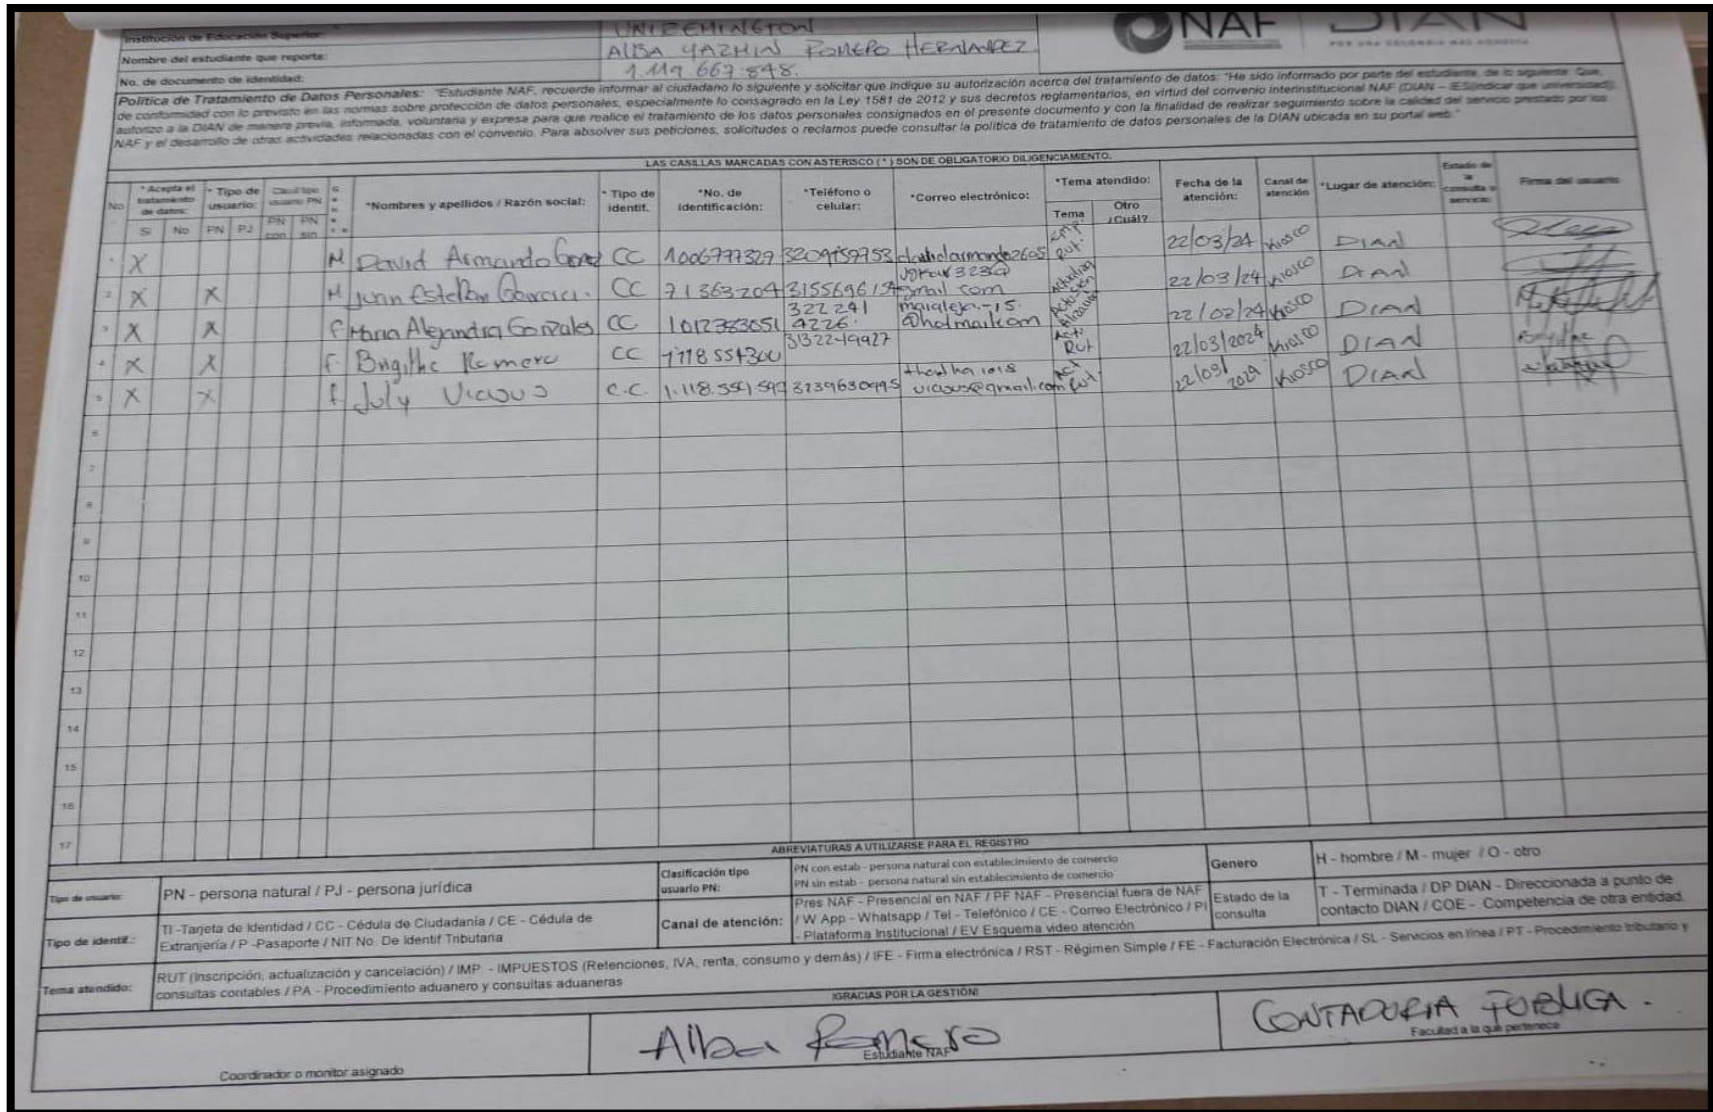 Institución de Educación Superior: UNIREMINGTON
NAF DIAN
Nombre del estudiante que reporta: ALBA YAZMIN ROMERO HERNANDEZ
POR UNA COLOMBIA MÁS HONESTA
No. de documento de identidad: 1.119.667.848.
Política de Tratamiento de Datos Personales: "Estudiante NAF, recuerde informar al ciudadano lo siguiente y solicitar que indique su autorización acerca del tratamiento de datos: "He sido informado por parte del estudiante, de lo siguiente: Que,
de conformidad con lo previsto en las normas sobre protección de datos personales, especialmente lo consagrado en la Ley 1581 de 2012 y sus decretos reglamentarios, en virtud del convenio interinstitucional NAF (DIAN – IES(indicar que universidad)),
autorizo a la DIAN de manera previa, informada, voluntaria y expresa para que realice el tratamiento de los datos personales consignados en el presente documento y con la finalidad de realizar seguimiento sobre la calidad del servicio prestado por los
NAF y el desarrollo de otras actividades relacionadas con el convenio. Para absolver sus peticiones, solicitudes o reclamos puede consultar la política de tratamiento de datos personales de la DIAN ubicada en su portal web."
LAS CASILLAS MARCADAS CON ASTERISCO (*) SON DE OBLIGATORIO DILIGENCIAMIENTO.
No * Acepta el tratamiento de datos: * Tipo de usuario: Clasif tipo usuario PN *Nombres y apellidos / Razón social: * Tipo de identif. *No. de identificación: *Teléfono o celular: *Correo electrónico: *Tema atendido: Fecha de la atención: Canal de atención *Lugar de atención: Estado de la consulta o servicio: Firma del usuario
Si No PN PJ PN con PN sin Tema Otro ¿Cuál?
1 X M David Armando CC 1006777329 3209159753 Rut. 22/03/24 Kiosco DIAN
2 X X M Juan Esteban Garcia. CC 71363204 gmail.com 22/03/24 Kiosco DIAN
3 X X f Maria Alejandra Gonzales CC 1012383051 322 241 9226 @hotmail.com 22/02/24 Kiosco DIAN
4 X X f. Brigithe Romero CC 1118554300 3132249927 Act. Rut 22/03/2024 Kiosco DIAN Brigithe
5 X X f. July C.C. 3239630995 Act Rut. 2024 Kiosco DIAN
6
7
8
9
10
11
12
13
14
15
16
17
ABREVIATURAS A UTILIZARSE PARA EL REGISTRO
Tipo de usuario: PN - persona natural / PJ - persona jurídica Clasificación tipo usuario PN: PN con estab - persona natural con establecimiento de comercio Genero H - hombre / M - mujer / O - otro
PN sin estab - persona natural sin establecimiento de comercio
Tipo de identif.: TI -Tarjeta de Identidad / CC - Cédula de Ciudadanía / CE - Cédula de Canal de atención: Pres NAF - Presencial en NAF / PF NAF - Presencial fuera de NAF Estado de la consulta T - Terminada / DP DIAN - Direccionada a punto de
Extranjería / P -Pasaporte / NIT No. De Identif Tributaria / W App - Whatsapp / Tel - Telefónico / CE - Correo Electrónico / PI contacto DIAN / COE - Competencia de otra entidad.
- Plataforma Institucional / EV Esquema video atención
Tema atendido: RUT (Inscripción, actualización y cancelación) / IMP. - IMPUESTOS (Retenciones, IVA, renta, consumo y demás) / IFE - Firma electrónica / RST - Régimen Simple / FE - Facturación Electrónica / SL - Servicios en línea / PT - Procedimiento tributario y
consultas contables / PA - Procedimiento aduanero y consultas aduaneras
¡GRACIAS POR LA GESTIÓN!
Alba Romero
CONTADURIA PUBLICA.
Coordinador o monitor asignado
Estudiante NAF
Facultad a la que pertenece